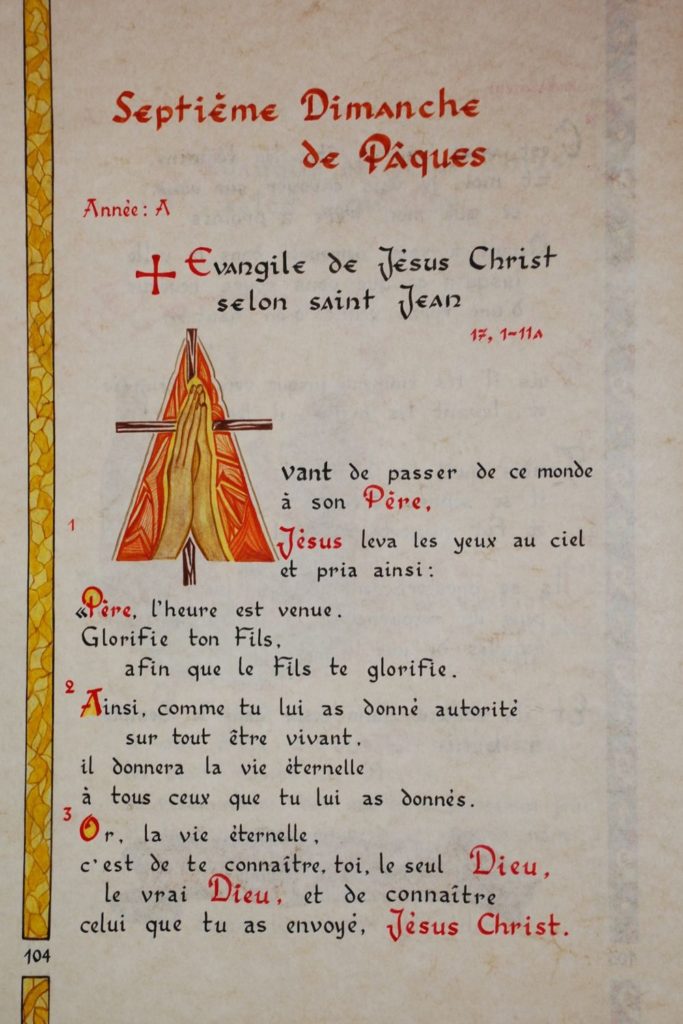 Septième Dimanche
de Pâques
Année : A
Evangile de Jésus Christ
selon saint Jean
17, 1-11A
vant de passer de ce monde
à son Père,
1
Jésus leva les yeux au ciel
et pria ainsi :
«Père, l'heure est venue.
Glorifie ton Fils,
afin que le Fils te glorifie.
2
Ainsi, comme tu lui as donné autorité
sur tout être vivant,
il donnera la vie éternelle
à tous ceux que tu lui as donnés.
3
Or, la vie éternelle,
c'est de te connaître, toi, le seul Dieu,
le vrai Dieu, et de connaître
celui que tu as envoyé, Jésus Christ.
104